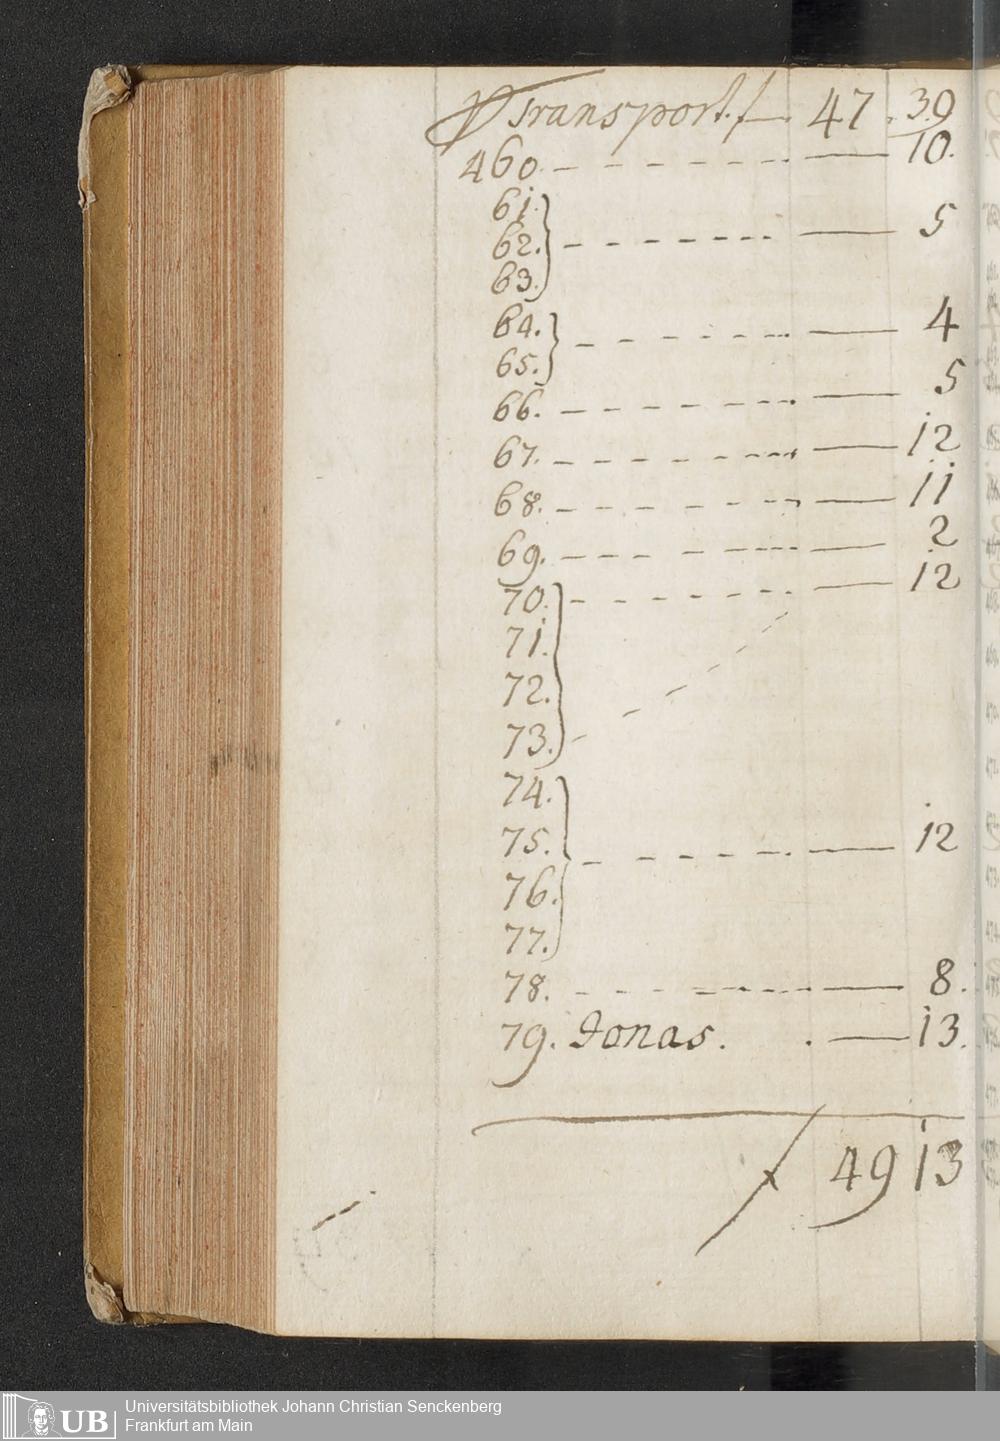 Transport. f — 47 . 39
460. — — — — — 10.
61.
62. — — — — — 5
63.
64. — — — — — 4
65.
66. — — — — — 5
67. — — — — — 12
68. — — — — — 11
69. — — — — — 2
70. — — — — — 12
71.
72.
73.
74.
75. — — — — — 12
76.
77.
78. — — — — — 8.
79. Jonas. . — 13.
f 49 13
UB
Universitätsbibliothek Johann Christian Senckenberg
Frankfurt am Main